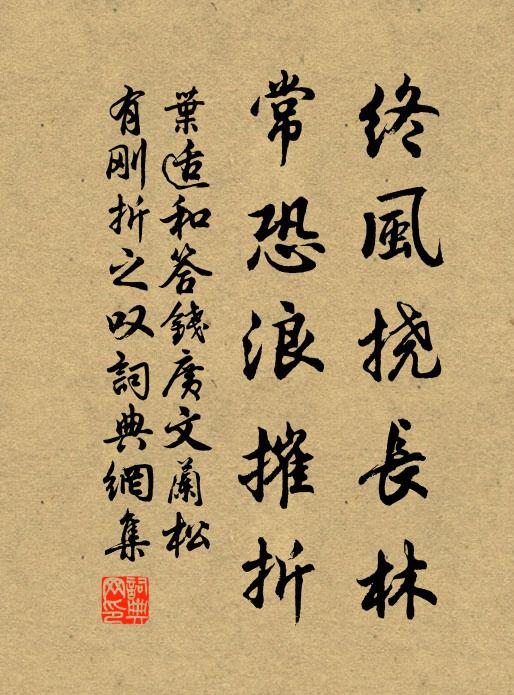 终風挠長林
常恐浪摧折
葉适和答錢廣文蘭松
有刚折之叹詞典網集
詞典网印